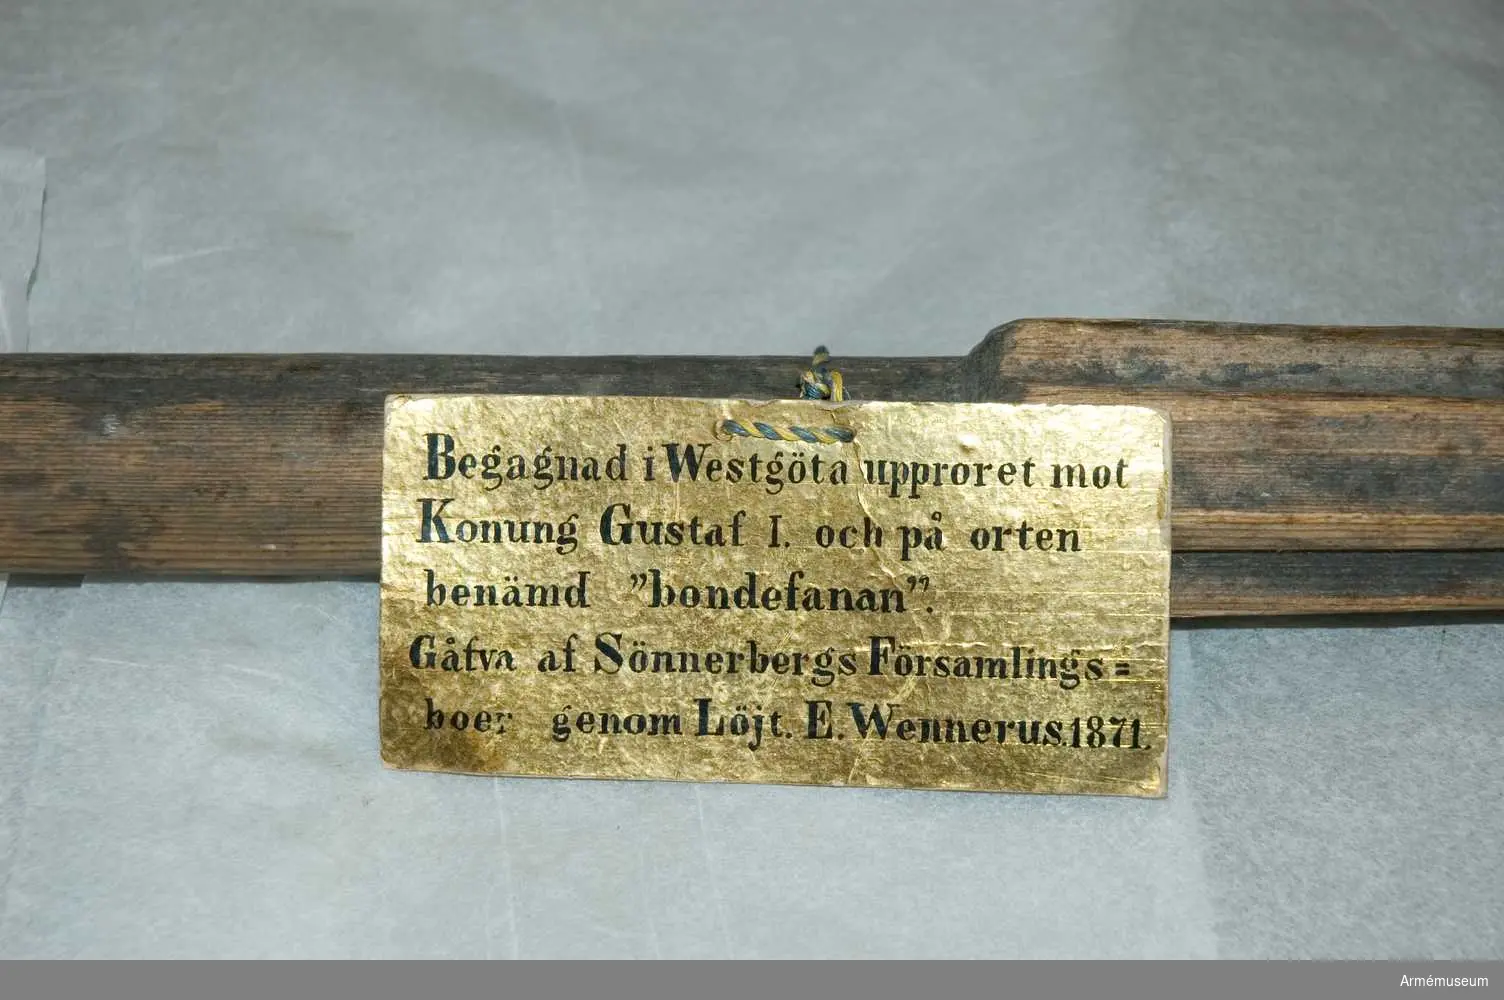 Begagnad i Westgöta upproret mot
Konung Gustaf I. och på orten
benämd "bondefanan".
Gåfva af Sönnerbergs Församlings=
boer genom Löjt. E. Wennerus. 1871.
Armémuseum